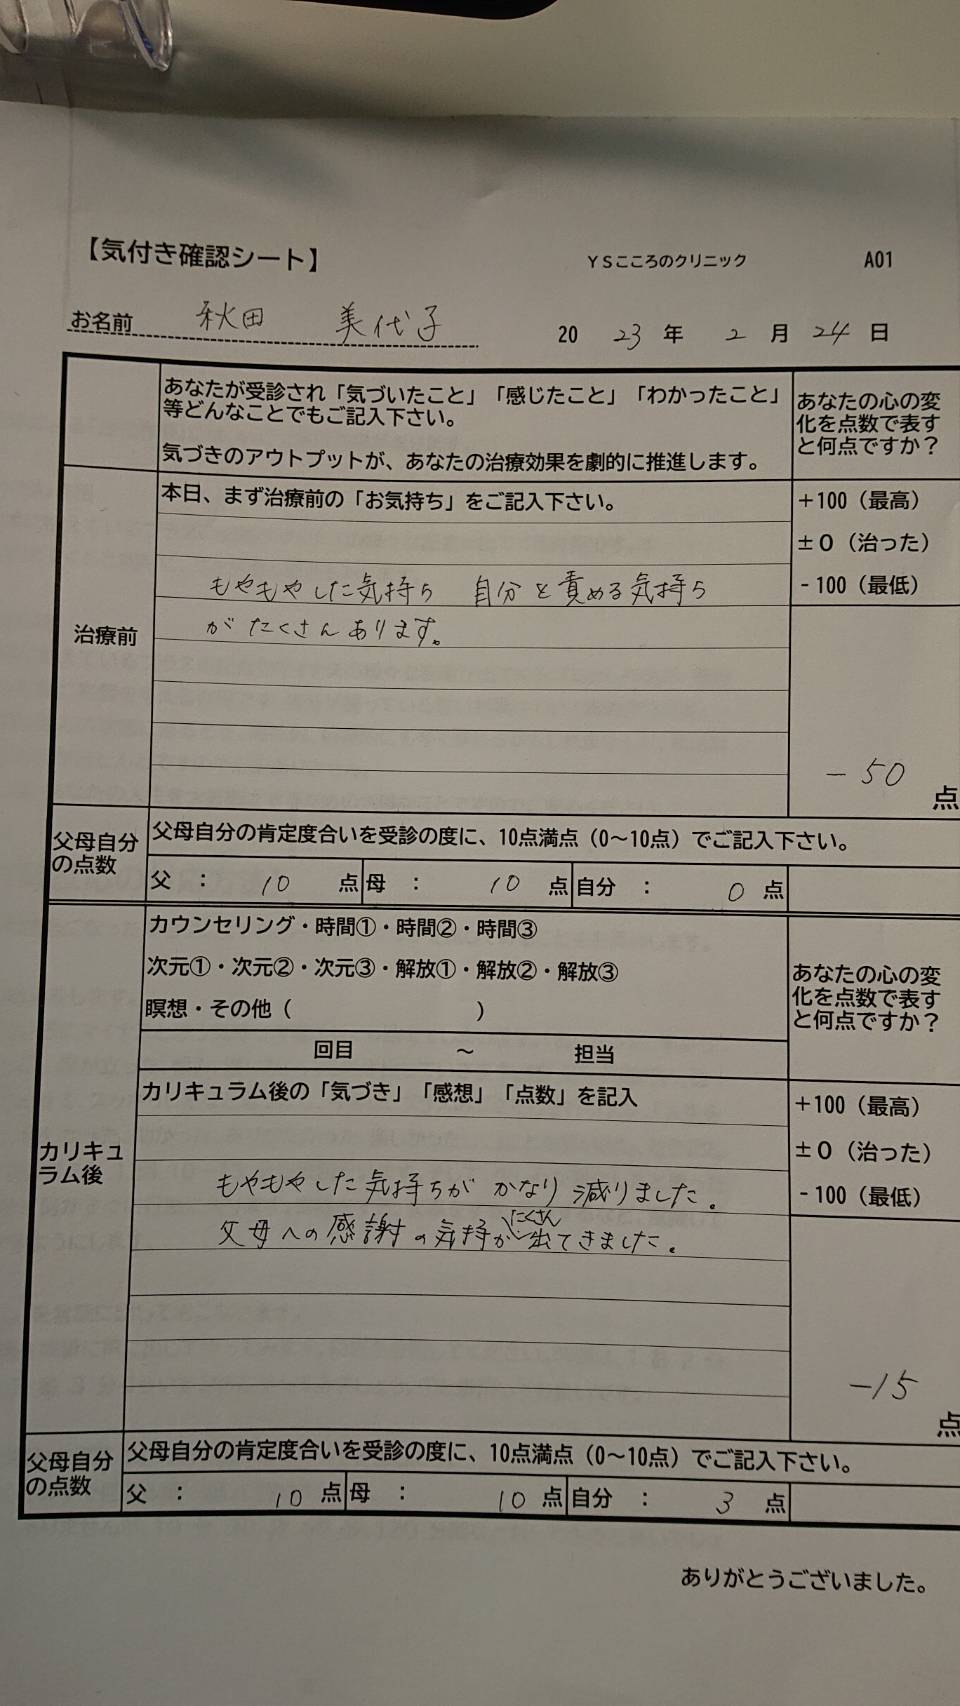 【気付き確認シート】 YSこころのクリニック A01
お名前 秋田 美代子 20 23 年 2 月 24 日
あなたが受診され「気づいたこと」「感じたこと」「わかったこと」
等どんなことでもご記入下さい。
気づきのアウトプットが、あなたの治療効果を劇的に推進します。
あなたの心の変
化を点数で表す
と何点ですか？
治療前
本日、まず治療前の「お気持ち」をご記入下さい。
もやもやした気持ち 自分を責める気持ち
がたくさんあります。
+100（最高）
±0（治った）
-100（最低）
-50 点
父母自分
の点数
父母自分の肯定度合いを受診の度に、10点満点（0～10点）でご記入下さい。
父 ： 10 点 母 ： 10 点 自分 ： 0 点
カリキュ
ラム後
カウンセリング・時間①・時間②・時間③
次元①・次元②・次元③・解放①・解放②・解放③
瞑想・その他（ ）
回目 ～ 担当
あなたの心の変
化を点数で表す
と何点ですか？
カリキュラム後の「気づき」「感想」「点数」を記入
もやもやした気持ちが かなり減りました。
父母への感謝の気持がたくさん出てきました。
+100（最高）
±0（治った）
-100（最低）
-15 点
父母自分
の点数
父母自分の肯定度合いを受診の度に、10点満点（0～10点）でご記入下さい。
父 ： 10 点 母 ： 10 点 自分 ： 3 点
ありがとうございました。